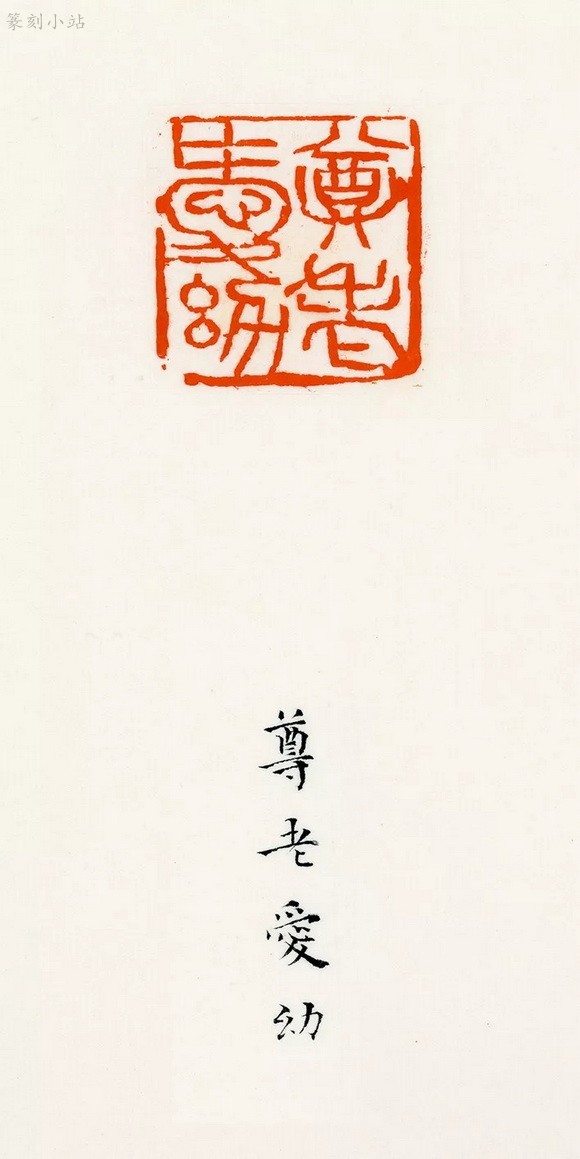 篆刻小站
尊老
愛幼
尊老愛幼